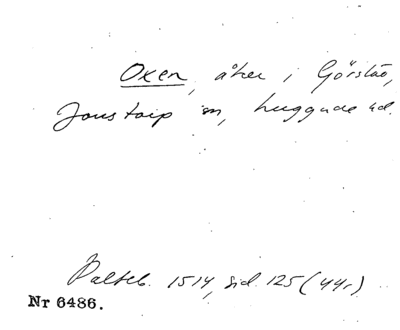 Oxen, åker i Görslöv,
Jonstorp sn, Luggude hd.
Palteb. 1514, sid. 125 (44r)
Nr 6486.